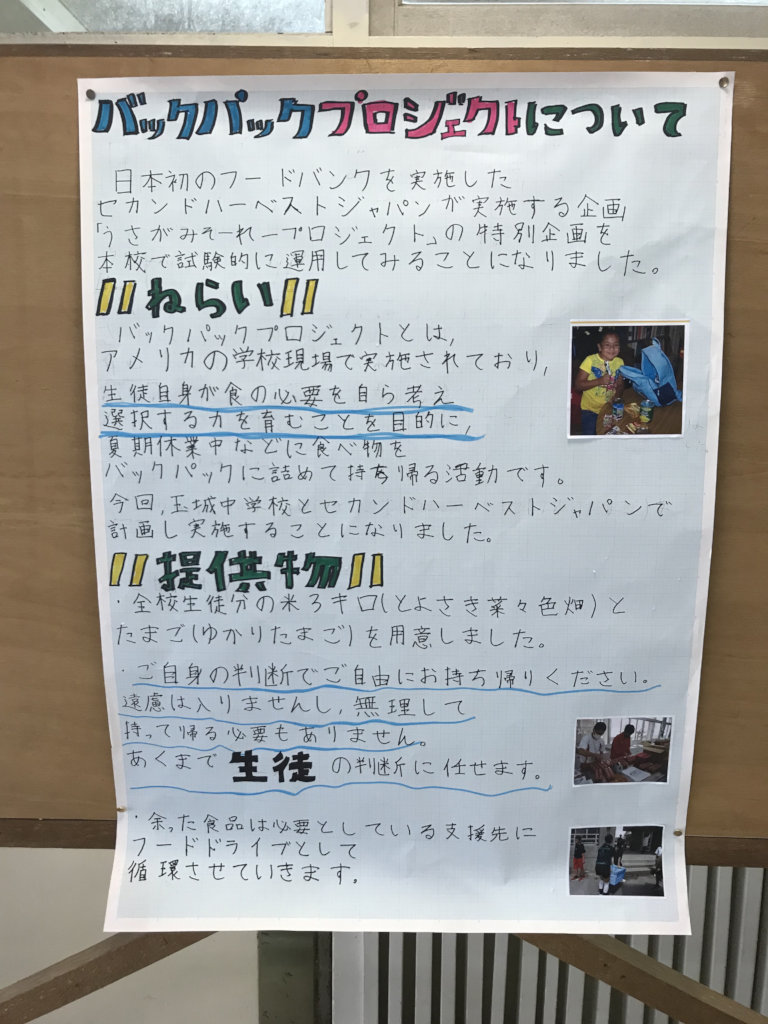 バックパックプロジェクトについて
日本初のフードバンクを実施した
セカンドハーベストジャパンが実施する企画
「うさがみそーれープロジェクト」の特別企画を
本校で試験的に運用してみることになりました。
〃ねらい〃
バックパックプロジェクトとは,
アメリカの学校現場で実施されており,
生徒自身が食の必要を自ら考え
選択する力を育むことを目的に,
夏期休業中などに食べ物を
バックパックに詰めて持ち帰る活動です。
今回,玉城中学校とセカンドハーベストジャパンで
計画し実施することになりました。
〃提供物〃
・全校生徒分の米3キロ(とよさき菜々色畑)と
たまご(ゆかりたまご)を用意しました。
・ご自身の判断でご自由にお持ち帰りください。
遠慮は入りませんし,無理して
持って帰る必要もありません。
あくまで生徒の判断に任せます。
・余った食品は必要としている支援先に
フードドライブとして
循環させていきます。